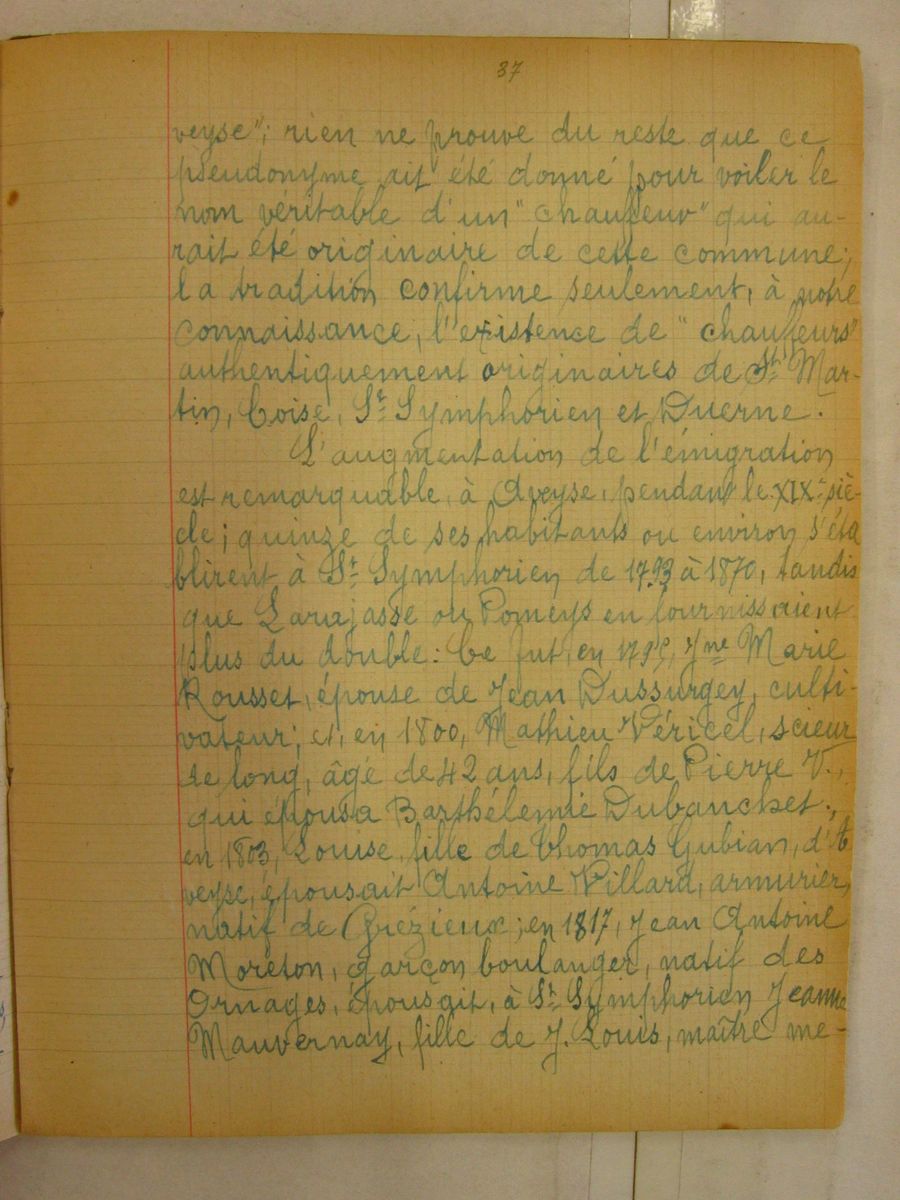 37
veyse"; rien ne prouve du reste que ce
pseudonyme ait été donné pour voiler le
nom véritable d'un "chauffeur" qui au-
rait été originaire de cette commune;
la tradition confirme seulement, à notre
connaissance, l'existence de "chauffeurs"
authentiquement originaires de St Mar-
tin, Coise, St Symphorien et Duerne.
L'augmentation de l'émigration
est remarquable, à Aveyse, pendant le XIXe siè-
cle; quinze de ses habitants ou environ s'éta
blirent à St Symphorien de 1793 à 1870, tandis
que Larajasse ou Pomeys en fournissaient
plus du double: Ce fut, en Jne Marie
Rousset, épouse de Jean Dussurgey, culti-
vateur; et, en 1800, Mathieu Véricel, scieur
de long, âgé de 42 ans, fils de Pierre V.,
qui épousa Barthélemie Dubanchet;
en 1803, Louise, fille de Thomas Gubian, d'A
veyse, épousait Antoine Villard, armurier,
natif de Grézieux; en 1817, Jean Antoine
Moreton, garçon boulanger, natif des
Ornages, épousait, à St Symphorien Jeanne
Mauvernay, fille de J. Louis, maître me-